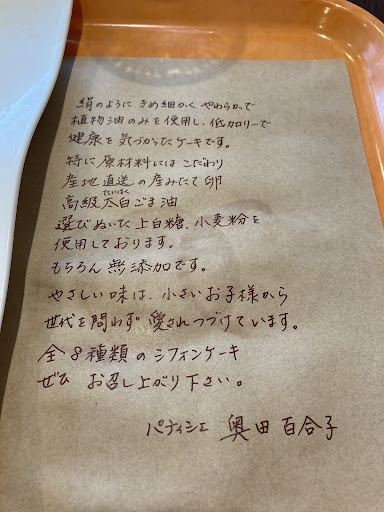 絹のように きめ細かく やわらかで
植物油のみを使用し、低カロリーで
健康を気づかったケーキです。
特に 原材料には こだわり
産地直送の産みたて卵
高級太白ごま油
たいはく
選びぬいた 上白糖、小麦粉を
使用しております。
もちろん 無添加です。
やさしい味は、小さいお子様から
世代を問わず 愛されつづけています。
全8種類のシフォンケーキ
ぜひ お召し上がり下さい。
パティシエ 奥田 百合子